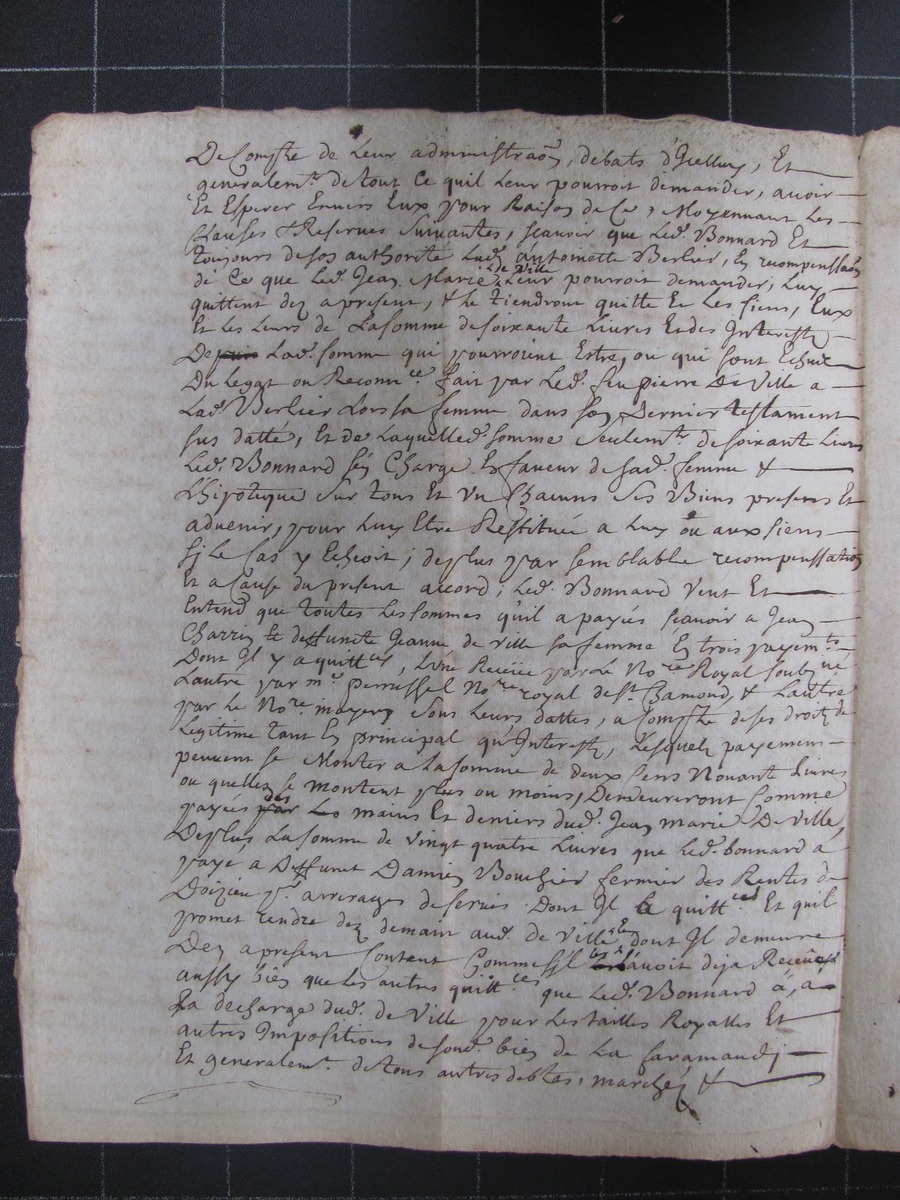 De Compte de Leur administraôn, debats d'Iceluy, Et
generalemt. de tout Ce quil Leur pourroit demander, avoir
Et Esperer Envers Eux pour Raison de Ce, Moyennant Les
Clauses & Reserves Suivantes, scavoir que Led. Bonnard Et
toujours de son authorité Lad. antoinette Berlier, En recompensaôn
de Ce que Led. Jean Marie de ville Leur pourroit demander, Luy
quittent dez apresent, & Le tiendront quitte Et Les siens, Eux
Et les Leurs de La somme de soixante Livres Et des Interests
De Lad. somme qui pourroient Estre, ou qui sont Echus
Du Legat ou Reconnce. fait par Led. feu pierre De Ville a
Lad. Berlier Lors sa femme dans son Dernier testament
sus datté, Et de Laquelle d. somme seulemt. de soixante Livres
Led. Bonnard s'en Charge En faveur de sad. femme &
L'hipoteque sur tous Et un Chacuns ses Biens presens Et
advenir, pour Luy Etre Restituée a Luy ou aux siens
si le Cas y Echeoit; de plus par semblable recompensation
Et a Cause du present accord, Led. Bonnard Veut Et
Entend que toutes Les sommes qu'il a payées scavoir a Jean
Charrin Et deffunte Jeanne de ville sa femme En trois payemts.
Dont Il y a quittces, L'une Reçüe par Le Nore. Royal soubzné
Lautre par me. perrussel Nore. royal de St. Chamond, & Lautre
par Le Nore. mayery sous Leurs dattes, a Compte de ses droitz de
Legitime tant En principal qu'Interests, Lesquels payemens
peuvent se Monter a La somme de deux Cens Nonante Livres
ou quelles se montent plus ou moins, Demeureront Comme
payées des mains Et deniers dud. Jean marie De Ville,
De plus La somme de vingt quatre Livres que Led. bonnard a
payé a Deffunct Damien Bouchier fermier des Rentes de
Doizieu pr. arrerages de servis Dont Il a quittces Et quil
promet rendre dez demain aud. de Ville dont Il demeure
Dez apresent Content Comme s'Il l'avoit deja Receües
aussy bien que Les autres quittces que Led. Bonnard a, a
La decharge dud. de Ville pour Les tailles Royalles Et
autres Impositions de soud. bien de La faramandj
Et generalemt. de tous autres debtes, marchés &